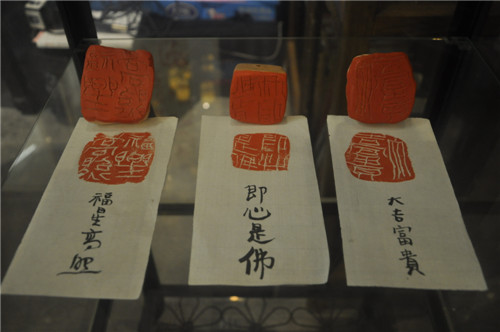 福星高照
即心是佛
大吉富貴